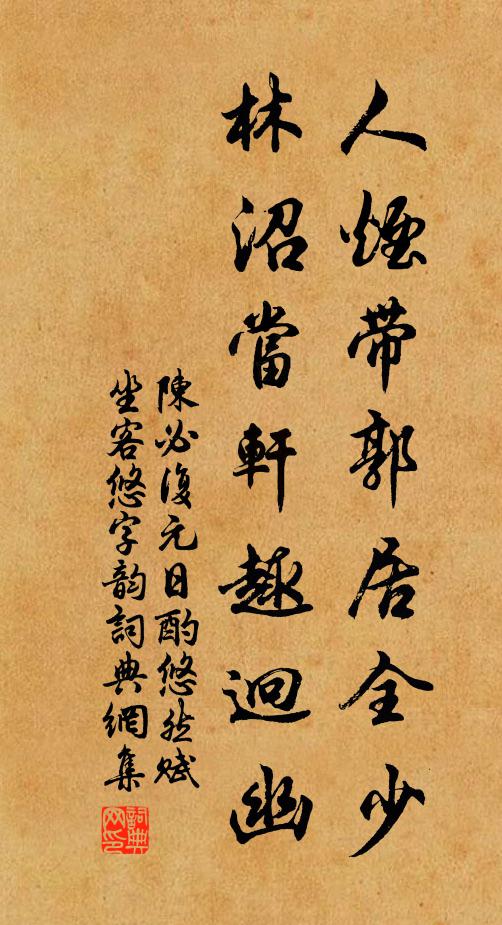 人煙带郭居全少
林沼當軒趣迥幽
陳必復元日酌悠然賦
坐客悠字韵詞典網集
詞典
网印